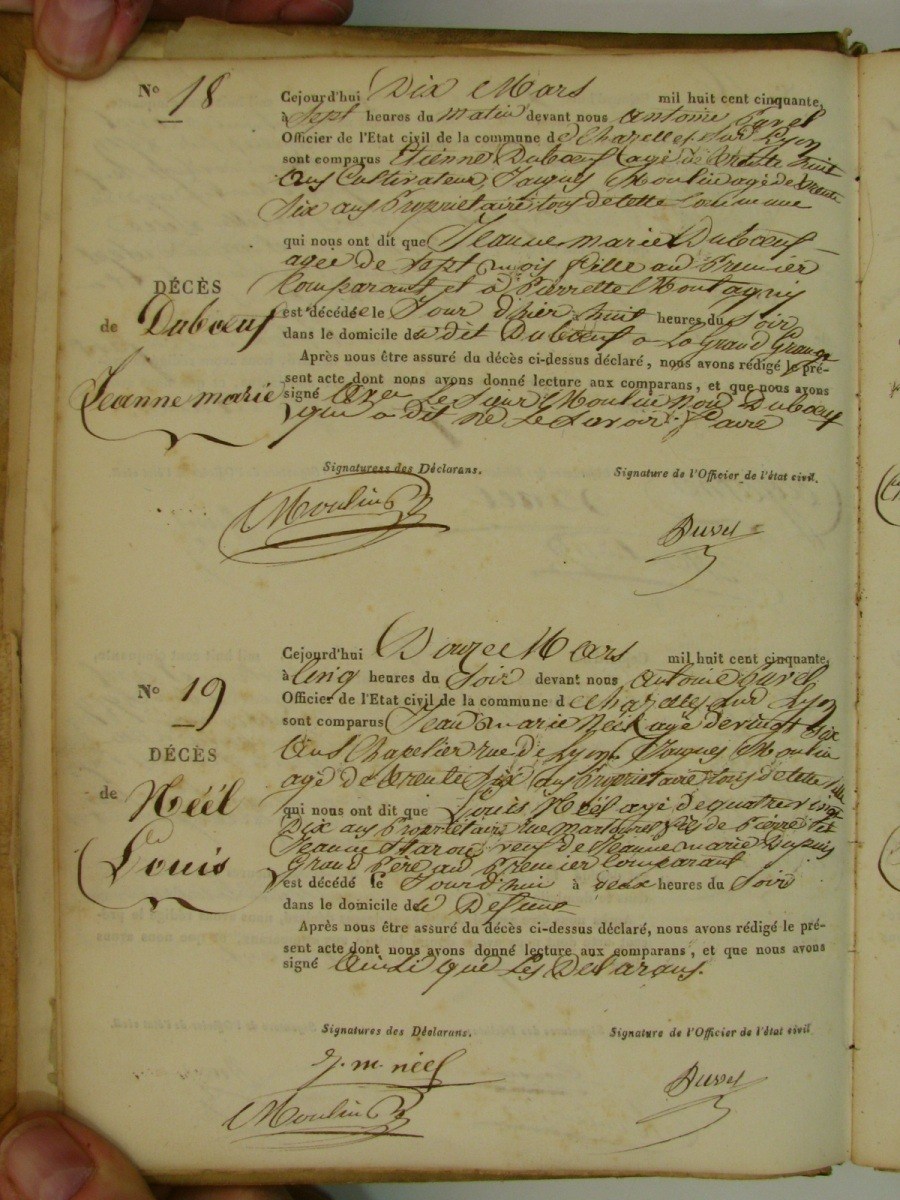 N° 18
Cejourd'hui Dix Mars mil huit cent cinquante,
à Sept heures du matin devant nous Antoine
Officier de l'Etat civil de la commune de Chazelles sur Lyon
sont comparus Etienne Dubœuf agé de trente huit
ans Cultivateur, Jaques Moulin agé de trente
Six ans Propriétaire tous de cette Commune
qui nous ont dit que Jeanne marie Dubœuf
agée de Sept mois fille au Premier
Comparant et à Pierrette Montagny
DÉCÈS
de Dubœuf
Jeanne marie
est décédée le Jour d'hier huit heures du Soir
dans le domicile du dit Dubœuf a La Grand Grange
Après nous être assuré du décès ci-dessus déclaré, nous avons rédigé le pré-
sent acte dont nous avons donné lecture aux comparans, et que nous avons
signé avec Le Sieur Moulin Non Dubœuf
qui a dit ne Le Savoir faire
Signatures des Déclarans.
Signature de l'Officier de l'état civil.
Moulin
N° 19
Cejourd'hui Douze Mars mil huit cent cinquante,
à Cinq heures du Soir devant nous Antoine
Officier de l'Etat civil de la commune de Chazelles sur Lyon
sont comparus Jean marie Néél agé de vingt Six
ans Chapelier rue de Lyon Jaques Moulin
agé de trente Six ans Propriétaire tous de cette ville
DÉCÈS
de Néél
Louis
qui nous ont dit que Louis Néél agé de quatre vingt
Dix ans Propriétaire rue fils de Pierre et
Jeanne veuf de Jeanne marie Dupuis
Grand Père au Premier Comparant
est décédé le Jour d'hui à deux heures du Soir
dans le domicile du Defunt
Après nous être assuré du décès ci-dessus déclaré, nous avons rédigé le pré-
sent acte dont nous avons donné lecture aux comparans, et que nous avons
signé Ainsi que Les Déclarans.
Signatures des Déclarans.
Signature de l'Officier de l'état civil
J. m. néél
Moulin